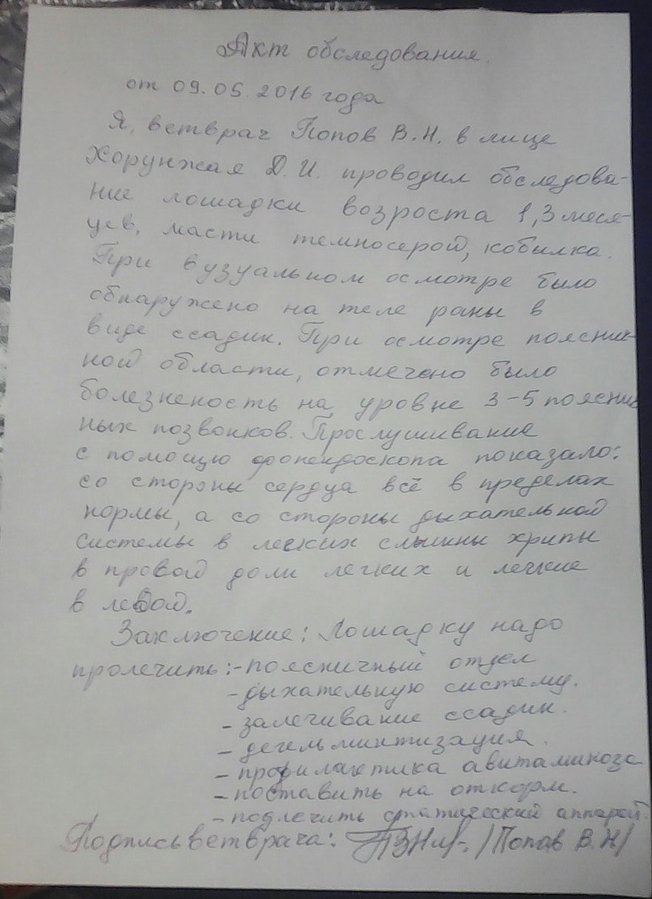 Акт обследования.
от 09.05.2016 года
Я, ветврач Попов В.Н. в лице
Хорунжая Д.И. проводил обследова-
ние лошадки возроста 1,3 меся-
цев, масти темносерой, кобылка.
При вузуальном осмотре было
обнаружено на теле раны в
виде ссадин. При осмотре пояснич-
ной области, отмечено было
болезненость на уровне 3-5 поясни
ных позвонков. Прослушивание
с помощью фонендоскопа показало:
со стороны сердца всё в пределах
нормы, а со стороны дыхательной
системы в легких слышны хрипы
в провой доли легких и легкие
в левой.
Заключение: Лошадку надо
пролечить: - поясничный отдел
- дыхательную систему.
- залечивание ссадин.
- дегельминтизация.
- профилактика авитаминоза
- поставить на откорм.
- подлечить статический аппарат.
Подпись ветврача: /Попов В.Н/